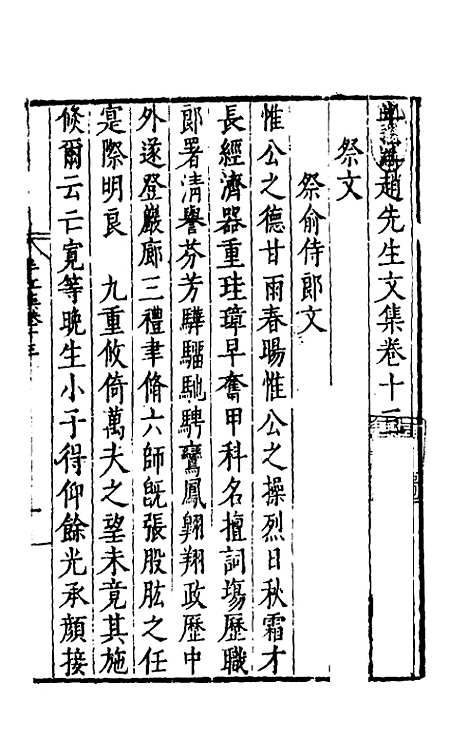 趙先生文集卷十
祭文
祭俞侍郎文
惟公之德甘雨春暘惟公之操烈日秋霜才
長經濟器重珪璋早奮甲科名擅詞塲歷職
郎署清譽芬芳驊騮馳騁鸞鳳翱翔政歷中
外遂登巖廊三禮聿脩六師旣張股肱之任
寔際明良　九重攸倚萬夫之望未竟其施
倐爾云亡寛等晚生小子得仰餘光承顔接